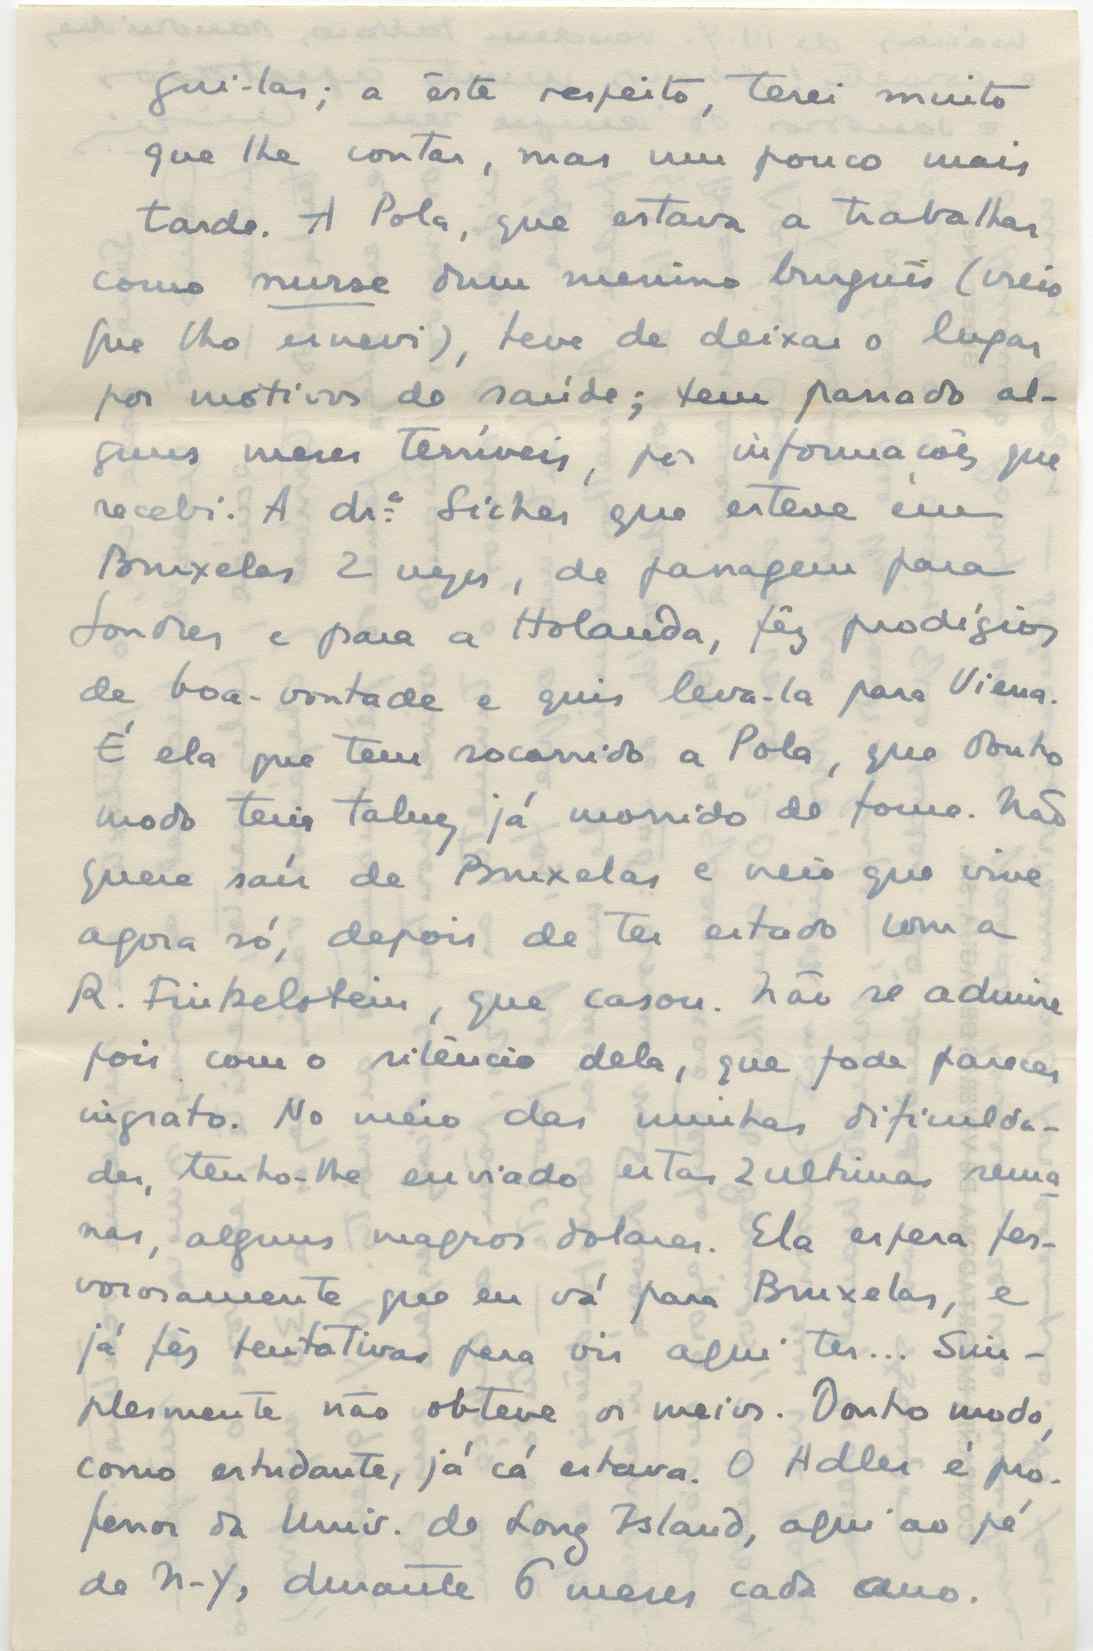 gui-las; a êste respeito, terei muito
que lhe contar, mas um pouco mais
tarde. A Pola, que estava a trabalhar
como nurse dum menino burguês (creio
que lho escrevi), teve de deixar o lugar
por motivos de saúde; tem passado al-
guns meses terríveis, por informações que
recebi. A dr.ª Sicher que esteve em
Bruxelas 2 vezes, de passagem para
Londres e para a Holanda, fêz prodígios
de boa-vontade e quis leva-la para Viena.
É ela que tem socorrido a Pola, que doutro
modo teria talvez já morrido de fome. Não
quere saír de Bruxelas e creio que vive
agora só, depois de ter estado com a
R. Finkelstein, que casou. Não se admire
pois com o silêncio dela, que pode parecer
ingrato. No meio das minhas dificulda-
des, tenho-lhe enviado estas 2 ultimas sema-
nas, alguns magros dolares. Ela espera fer-
vorosamente que eu vá para Bruxelas, e
já fêz tentativas para vir aqui ter... Sim-
plesmente não obteve os meios. Doutro modo,
como estudante, já cá estava. O Adler é pro-
fessor da Univ. de Long Island, aqui ao pé
de N-Y, durante 6 meses cada ano.